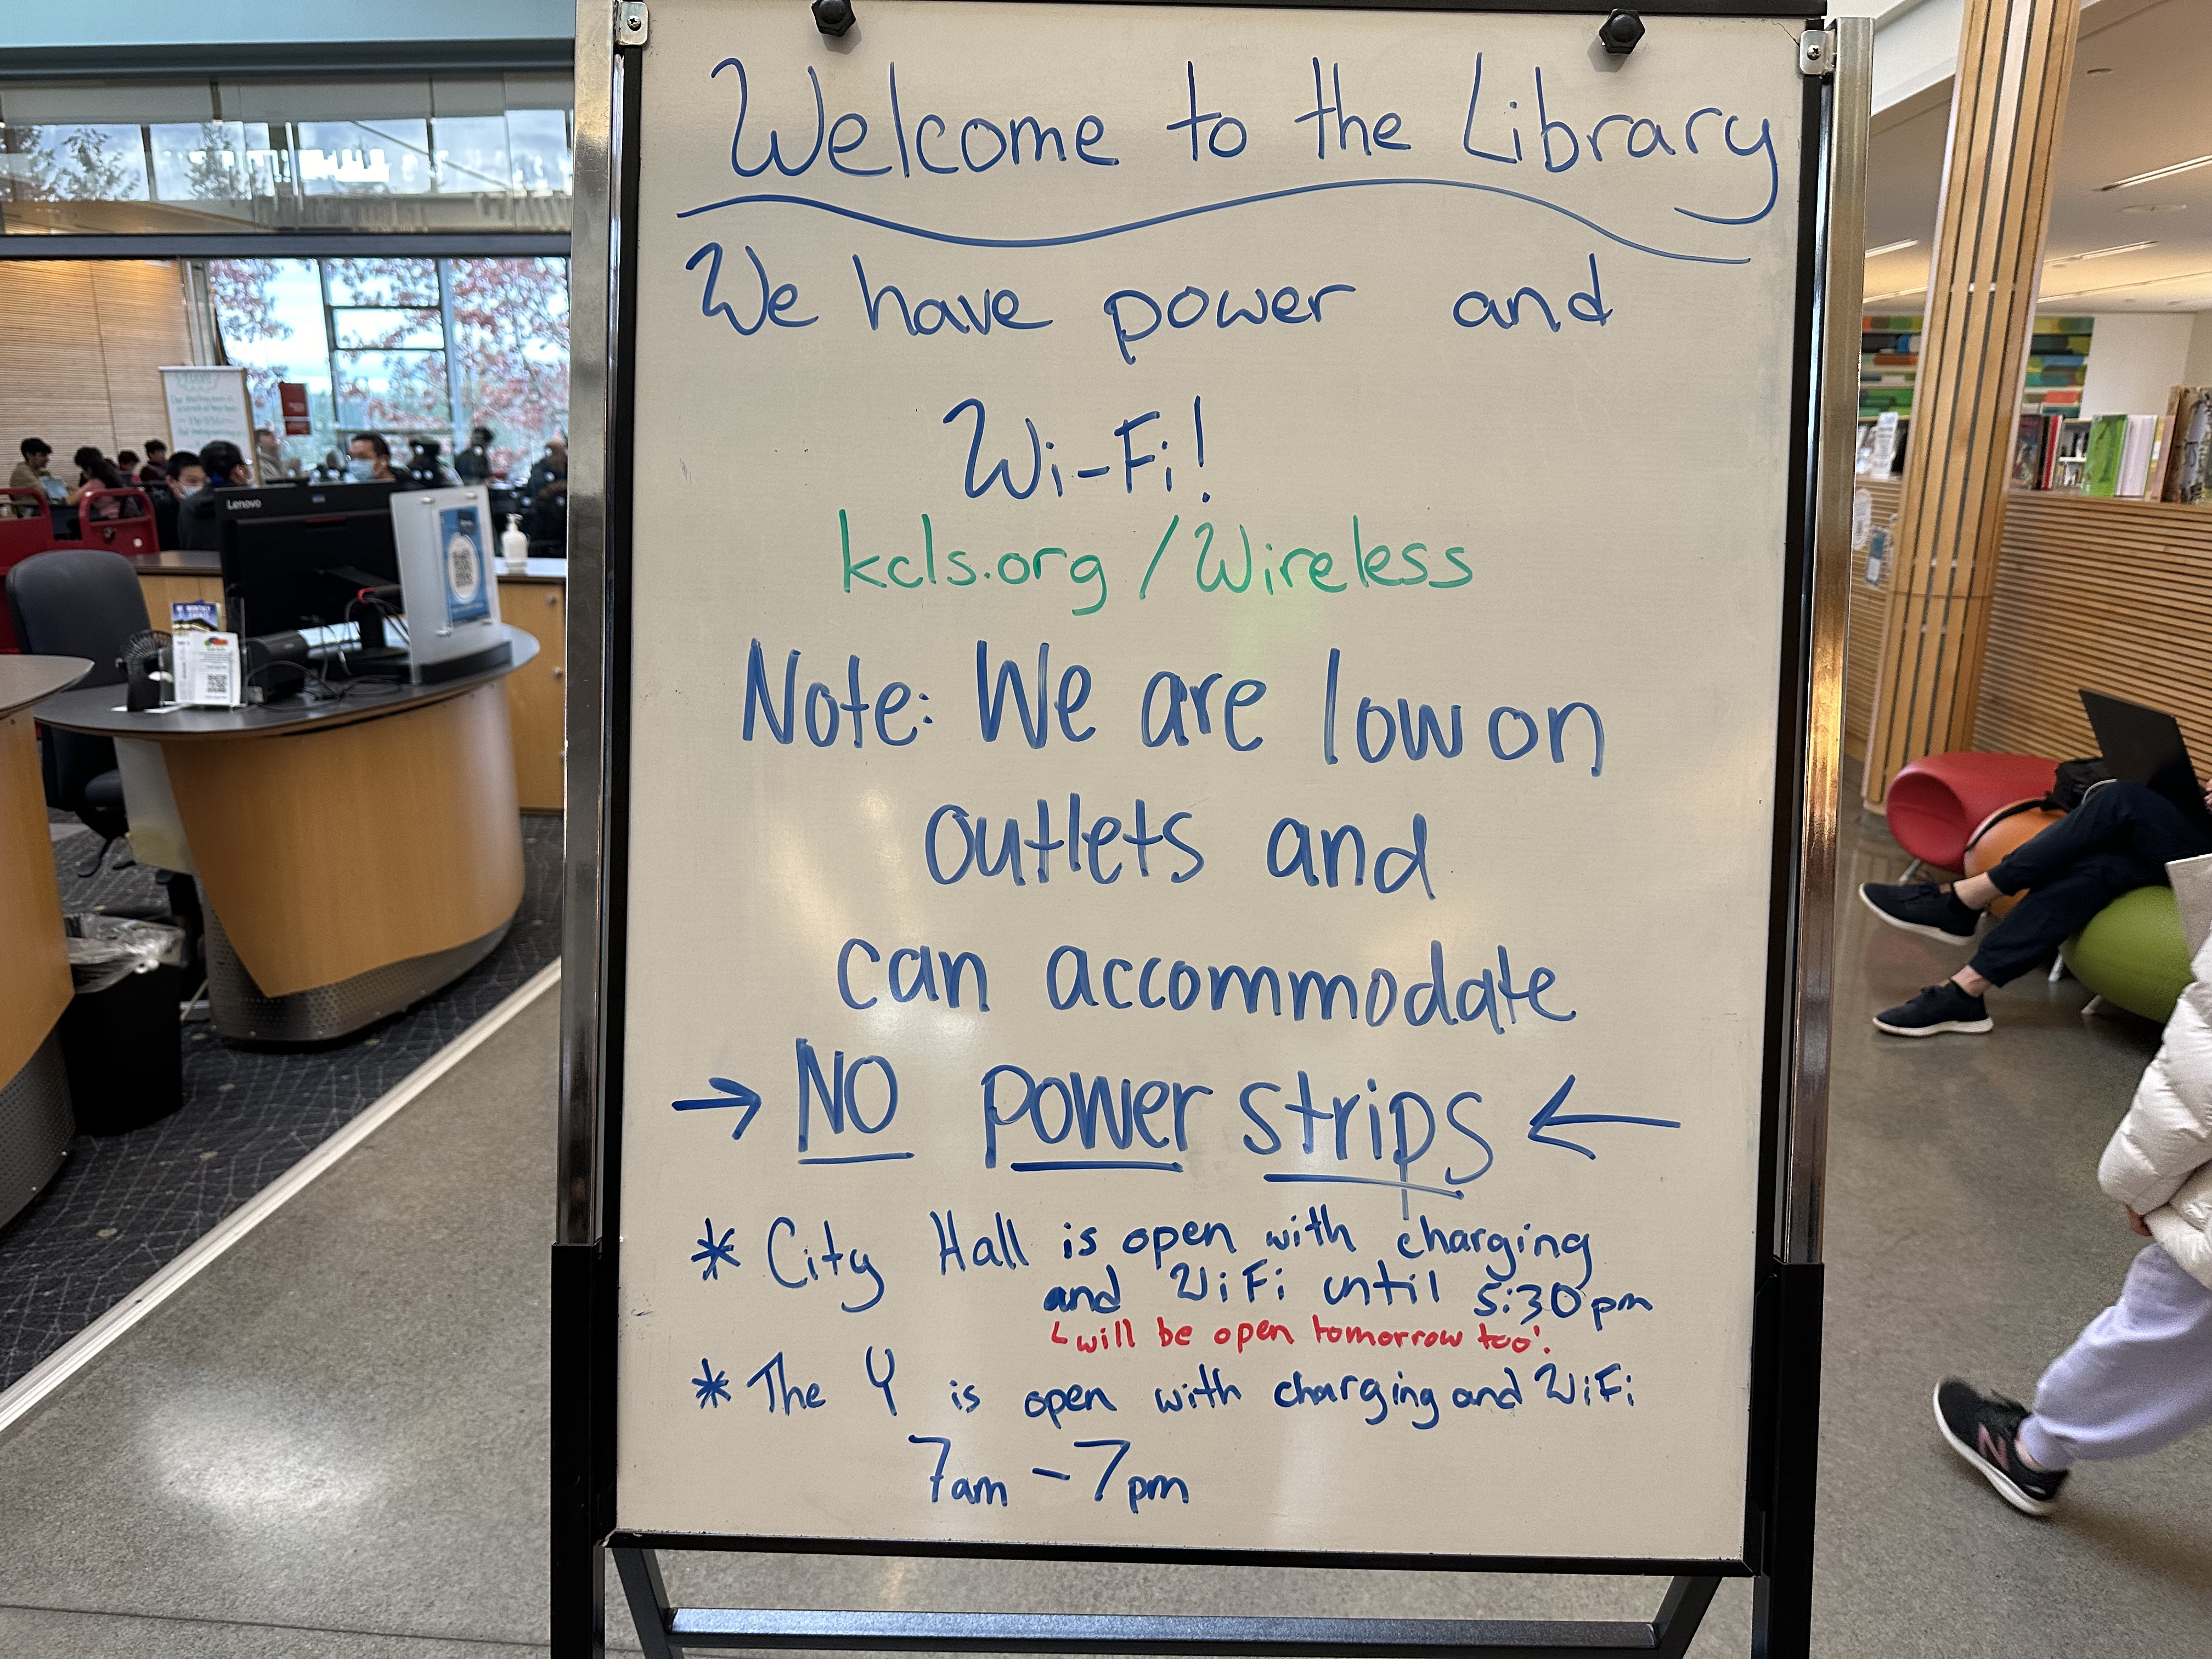 Welcome to the Library
We have power and
Wi-Fi!
kcls.org/Wireless
Note: We are low on
outlets and
can accommodate
→ NO power strips ←
* City Hall is open with charging
and WiFi until 5:30pm
will be open tomorrow too!
* The Y is open with charging and WiFi
7am - 7pm
Lenovo